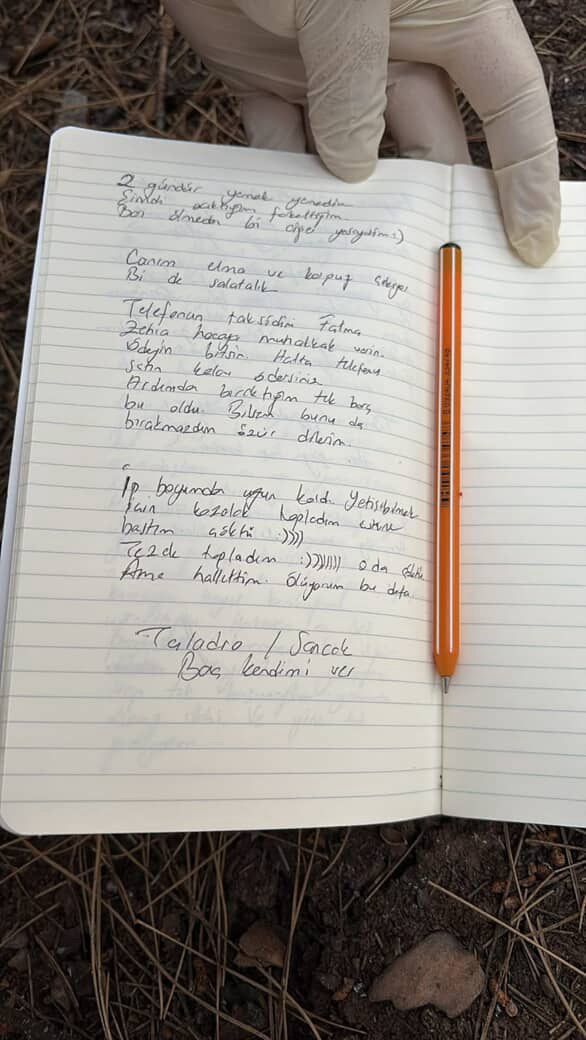 2 gündür yemek yemedim
Şimdi acıktığım farkettiğim
Ben ölmeden bi ciğer yeseydim :)
Canım elma ve karpuz çekiyor
Bi de salatalık
Telefonun taksidini Fatma
Zehra hocaya muhakkak verin.
Ödeyin bitsin. Hatta telefonu
satın kalanı ödersiniz
Ardımda bıraktığım tek borç
bu oldu. Bilsem bunu da
bırakmazdım özür dilerim.
İp boyumdan uzun kaldı. Yetişebilmek
için kozalak topladım üstüne
bastım çöktü :))))
Tezek topladım :)))))))) o da çöktü
Ama hallettim. Ölüyorum bu defa.
Taladro / Sancak
Boş kendimi ver